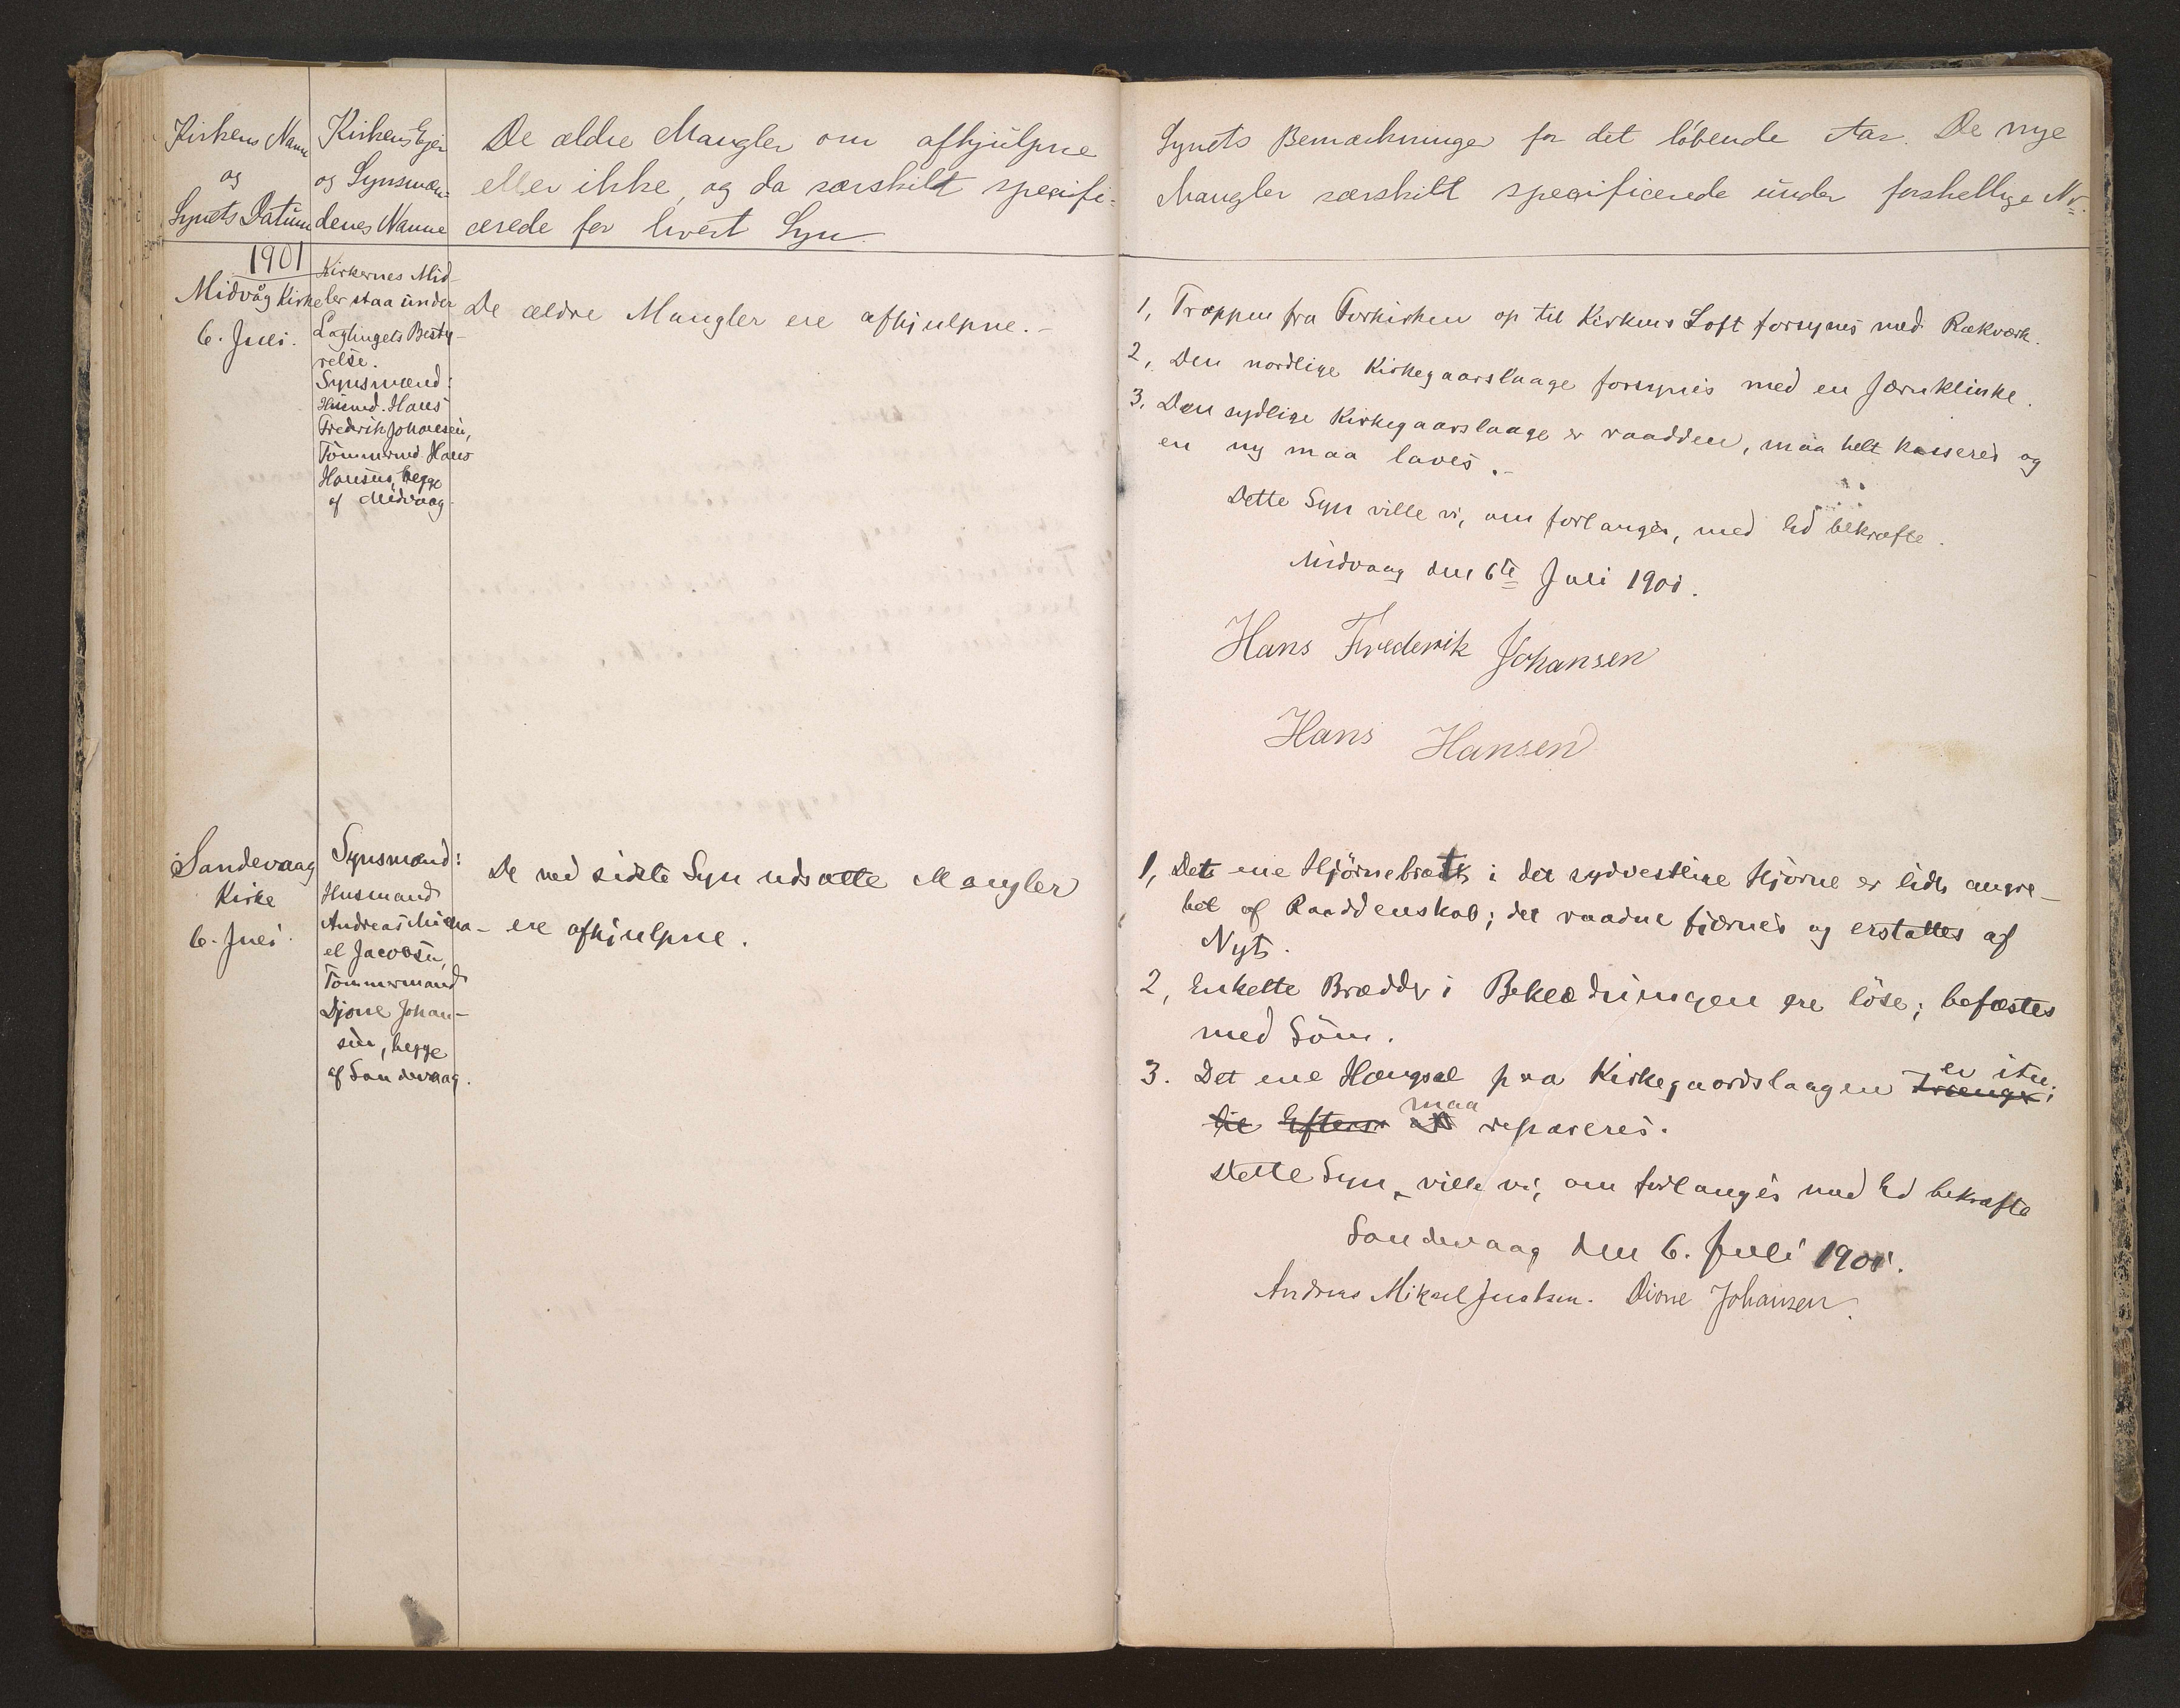 Kirkens Navn
og
Synets Datum
Kirkens Ejer
og Synsmæn-
denes Navne
De ældre Mangler om afhjulpne
eller ikke, og da særskilt specifi-
cerede for hvert Syn.
Synets Bemærkninger for det löbende Aar. De nye
Mangler særskilt specificerede under forskellige Nr.
1901
Midvåg Kirke
6. Juli.
Kirkernes Mid-
ler staa under
Lagtingets Besty-
relse.
Synsmænd:
Husmd. Hans
Fredrik Johansen,
Tömmermd. Hans
Hansen, begge
af Midvaag
De ældre Mangler ere afhjulpne.-
1, Trappen fra Forkirken op til Kirkens Loft forsynes med Rækværk.
2, Den nordlige Kirkegaarslaage forsynes med en Jærnklinke.
3. Den sydlige Kirkegaarslaage er raadden, maa helt kasseres og
en ny maa laves.-
Dette Syn ville vi, om forlanges, med Ed bekræfte.
Midvaag den 6te Juli 1901.
Hans Frederik Johansen
Hans Hansen
Sandevaag
Kirke
6. Juli
Synsmænd:
Husmand
Andreas Micha-
el Jacobsen,
Tömmermand
Djone Johan-
sen, begge
af Sandevaag.
De ved sidste Syn udsatte Mangler
ere afhjulpne.
1, Det ene Hjörnebrædt i det sydvestlige Hjörne er lidt angre-
bet af Raaddenskab; det raadne fjærnes og erstattes af
Nyt.
2, Enkelte Brædder i Beklædningen ere löse; befæstes
med Söm.
3. Det ene Hængsel paa Kirkegaardslaagen trænger er itu;
til Efters at maa repareres.
Dette Syn ville vi, om forlanges med Ed bekræfte
Sandevaag den 6. Juli 1901.
Andreas Mikael Jacobsen. Dione Johansen.